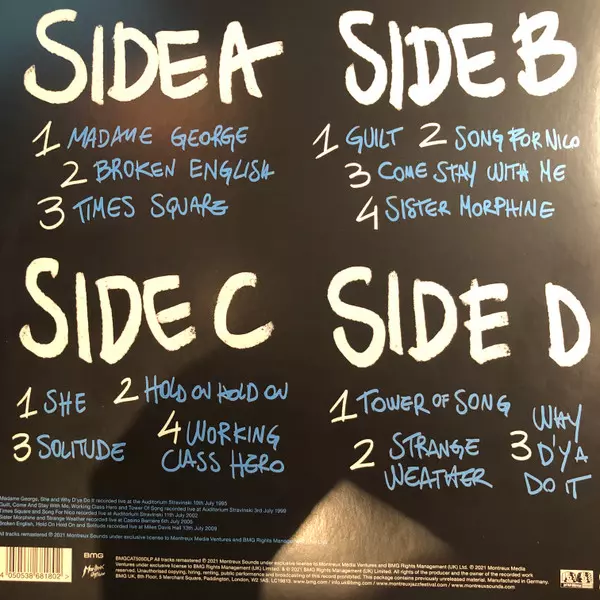 SIDE A
1 MADAME GEORGE
2 BROKEN ENGLISH
3 TIMES SQUARE
SIDE B
1 GUILT 2 SONG FOR NICO
3 COME STAY WITH ME
4 SISTER MORPHINE
SIDE C
1 SHE 2 HOLD ON HOLD ON
3 SOLITUDE 4 WORKING
CLASS HERO
SIDE D
1 TOWER OF SONG
2 STRANGE
WEATHER
3 WHY
D'YA
DO IT
Madame George, She and Why D'ya Do It recorded live at the Auditorium Stravinski 10th July 1995
Guilt, Come And Stay With Me, Working Class Hero and Tower Of Song recorded live at the Auditorium Stravinski 3rd July 1999
Times Square and Song For Nico recorded live at the Auditorium Stravinski 11th July 2002
Sister Morphine and Strange Weather recorded live at Casino Barrière 6th July 2005
Broken English, Hold On Hold On and Solitude recorded live at Miles Davis Hall 13th July 2009
4 050538 681802 >
BMG
BMGCAT505DLP All tracks remastered ℗ 2021 Montreux Sounds under exclusive license to Montreux Media Ventures and BMG Rights Management (UK) Ltd. © 2021 Montreux Media
Ventures under exclusive license to BMG Rights Management (UK) Limited. All rights of the producer and the owner of the recorded work
reserved. Unauthorised copying, hiring, renting, public performance and broadcasting of this record prohibited. This package contains previously unreleased material. Manufactured in Germany.
BMG UK, 8th Floor, 5 Merchant Square, Paddington, London, W2 1AS. www.bmg.com / www.montreuxjazzfestival.com / www.montreuxsounds.com